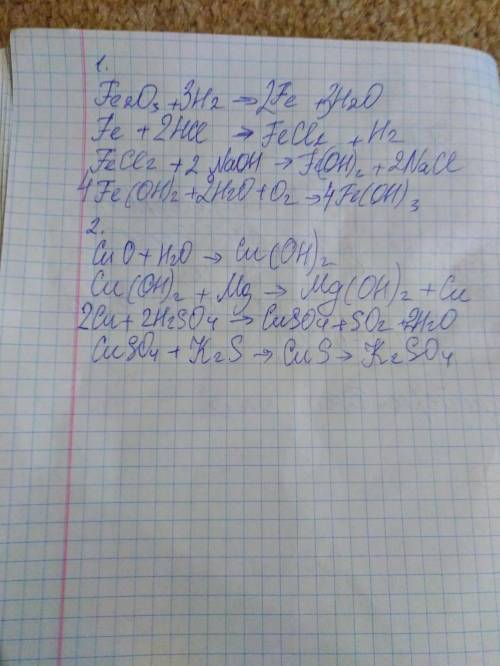 1.
Fe2O3 + 3H2 → 2Fe + 3H2O
Fe + 2HCl → FeCl2 + H2
FeCl2 + 2 NaOH → Fe(OH)2 + 2NaCl
4Fe(OH)2 + 2H2O + O2 → 4Fe(OH)3
2.
CuO + H2O → Cu(OH)2
Cu(OH)2 + Mg → Mg(OH)2 + Cu
2Cu + 2H2SO4 → CuSO4 + SO2 + 2H2O
CuSO4 + K2S → CuS → K2SO4